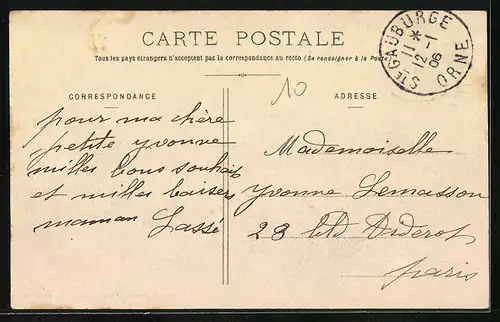 CARTE POSTALE
Tous les pays étrangers n'acceptent pas la correspondance au recto (Se renseigner à la Poste)
CORRESPONDANCE
pour ma chère
petite yvonne
milles bons souhaits
et milles baisers
maman Lassé
10
ADRESSE
Mademoiselle
Yvonne Lemasson
23 bld Diderot
paris
STE GAUBURGE
11 *
12 -1
06
ORNE